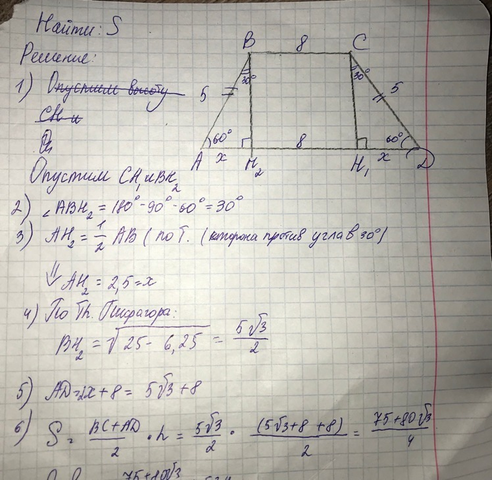 Найти: S
Решение:
1) Опустим высоту
CH и
Опустим CH₁ и BH₂
B 8 C
30° 30°
5 5
60° 60°
A x H₂ 8 H₁ x D
2) ∠ABH₂ = 180° - 90° - 60° = 30°
3) AH₂ = 1/2 AB (по т. (которона против угла в 30°)
⇓ AH₂ = 2,5 = x
4) По Th. Пифагора:
BH₂ = √25 - 6,25 = 5√3/2
5) AD = 2x + 8 = 5√3 + 8
6) S = BC + AD/2 · h = 5√3/2 · (5√3 + 8 + 8)/2 = 75 + 80√3/4
75 + 80√3